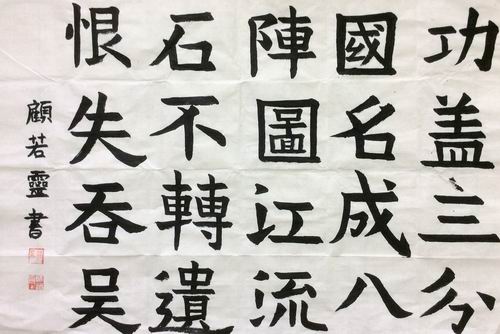 功盖三分
國名成八
陣圖江流
石不轉遺
恨失吞吴
顧若靈書